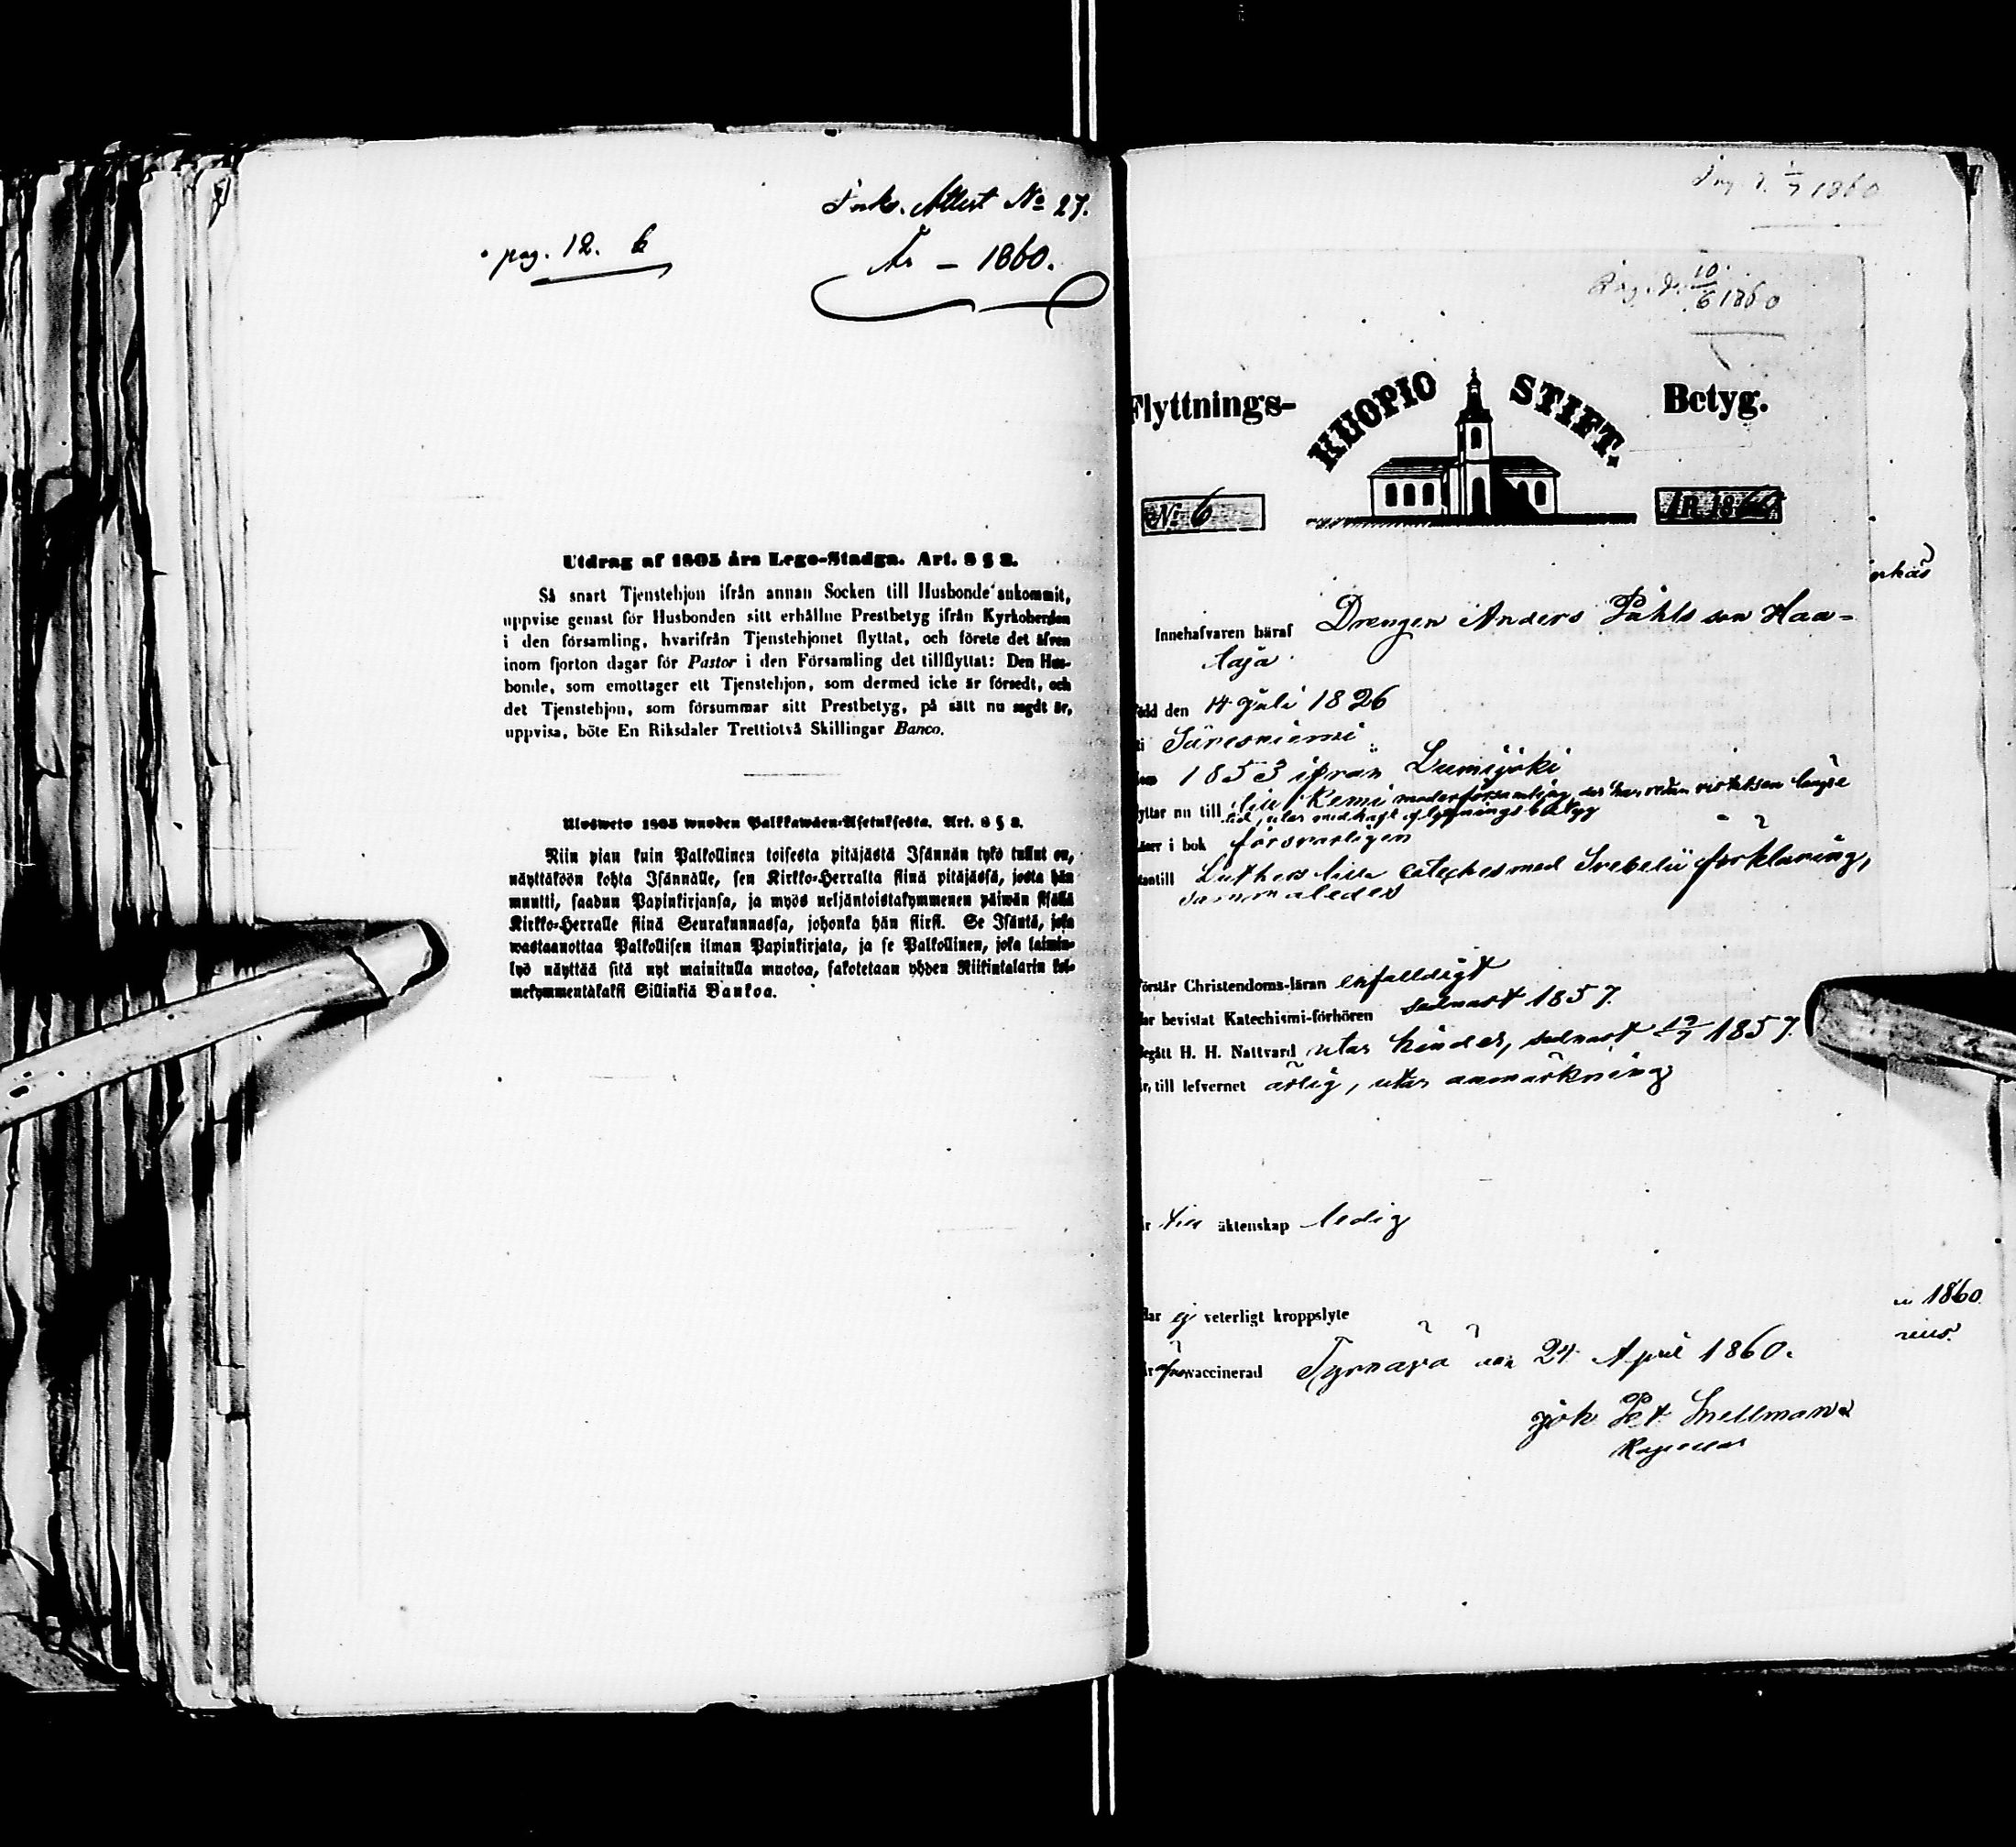 Attest No 27.
pag. 12. 6
År – 1860.
Utdrag af 1805 års Lego-Stadga. Art. 8 § 2.
Så snart Tjenstehjon ifrån annan Socken till Husbonde ankommit,
uppvise genast för Husbonden sitt erhållne Prestbetyg ifrån Kyrkoherden
i den församling, hvarifrån Tjenstehjonet flyttat, och förete det äfven
inom fjorton dagar för Pastor i den Församling det tillflyttat: Den Hus-
bonde, som emottager ett Tjenstehjon, som dermed icke är försedt, och
det Tjenstehjon, som försummar sitt Prestbetyg, på sätt nu sagdt är,
uppvisa, böte En Riksdaler Trettiotvå Skillingar Banco.
Ulosweto 1805 wuoden Palkkawäen-Asetuksesta. Art. 8 § 2.
Niin pian kuin Palkollinen toisesta pitäjästä Isännän tykö tullut on,
näyttäköön kohta Isännälle, sen Kirkko-Herralta siinä pitäjässä, josta hän
muutti, saadun Papinkirjansa, ja myös neljäntoistakymmenen päiwän sisällä
Kirkko-Herralle siinä Seurakunnassa, johonka hän siirsi. Se Isäntä, joka
wastaanottaa Palkollisen ilman Papinkirjata, ja se Palkollinen, joka laimin-
lyö näyttää sitä nyt mainitulla muotoa, sakotetaan yhden Riikintalarin kol-
mekymmentäkaksi Sillinkiä Bankoa.
1/7 1860
10/6 1860
Flyttnings- KUOPIO STIFT. Betyg.
No 6 ÅR 1860
Innehafvaren häraf Drengen Anders Påhlsson Haa-
laja
född den 14 Juli 1826
i Säresniemi
1853 ifrån Lumijoki
flyttar nu till till Kemi moderförsamling, der han redan vistatsen längre
tid, utan medhaft flyttningsbetyg
läser i bok försvarligen
utantill Luthers lilla Cateches med Svebelii förklaring,
sammaledes
förstår Christendoms-läran enfalldigt
har bevistat Katechismi-förhören sednast 1857.
begått H. H. Nattvard utan hinder, sednast 12/7 1857.
är till lefvernet ärlig, utan anmärkning
är till äktenskap ledig
Har ej veterligt kroppslyte
1860
är vaccinerad Tyrnävä den 24 April 1860.
Joh Pet Snellman
Kapellan